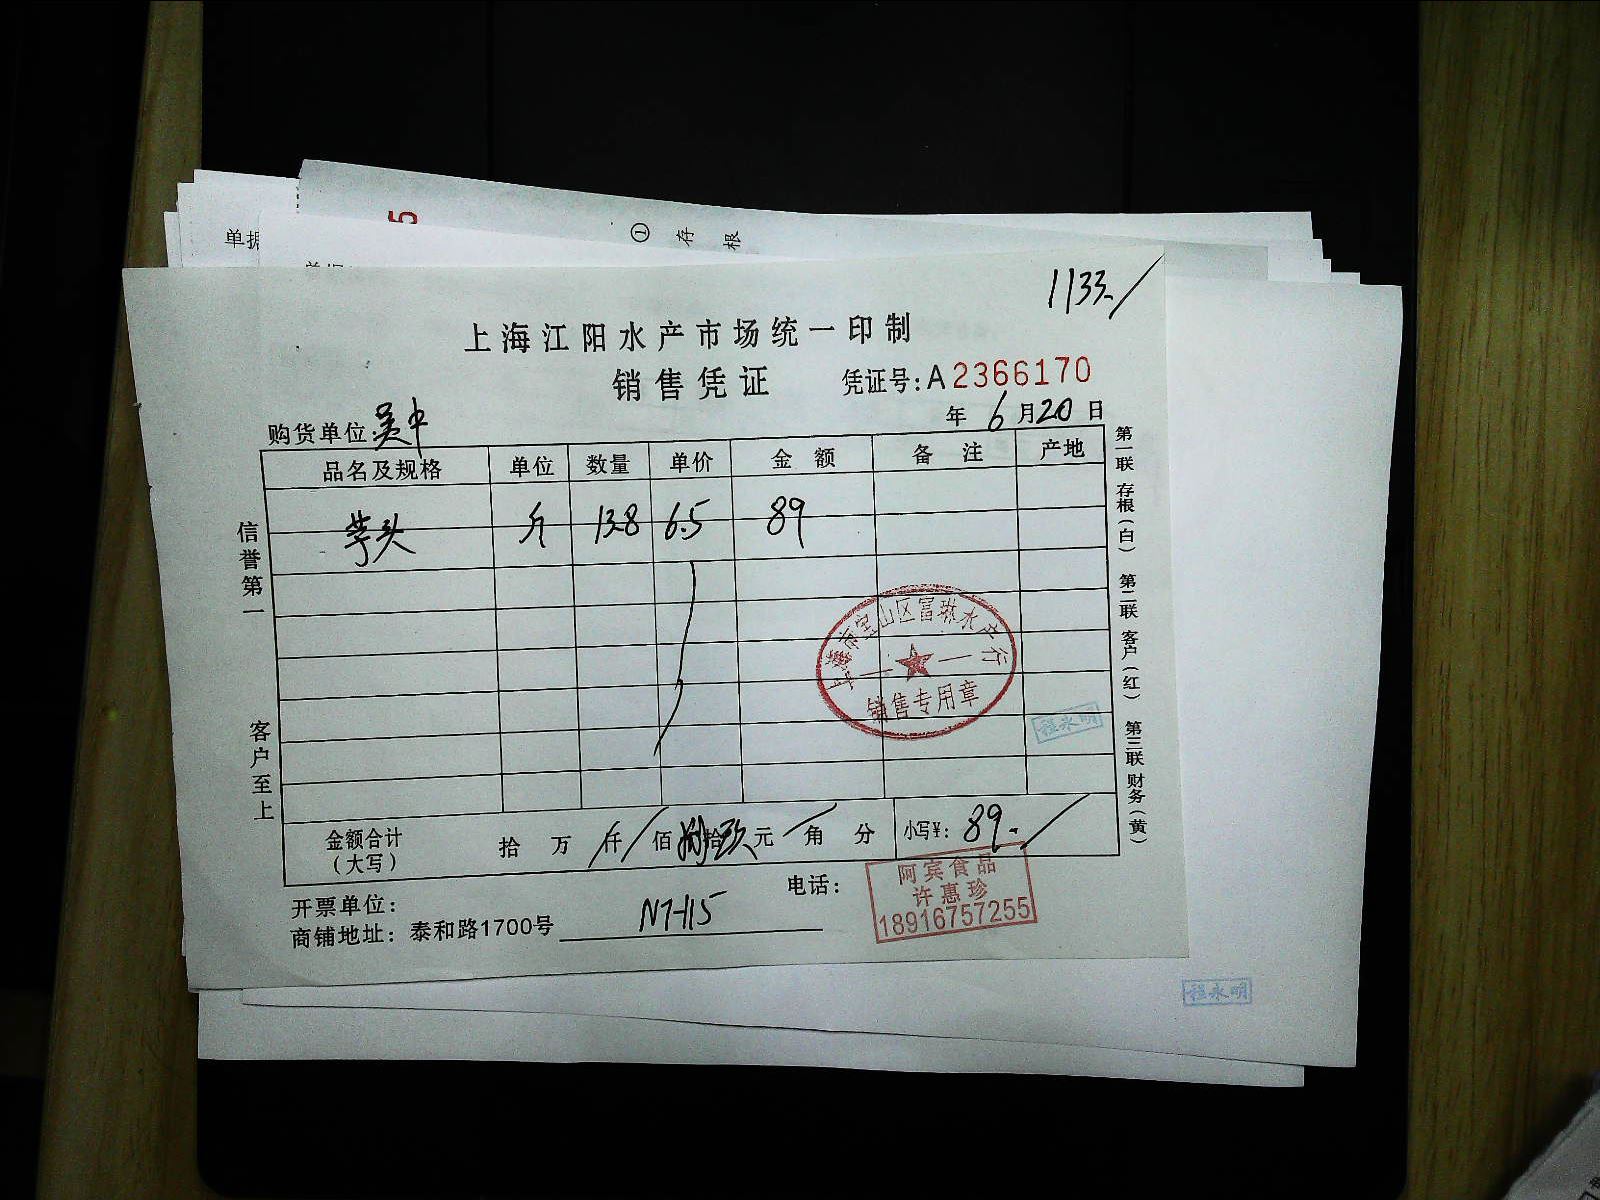 5
① 存 根
单据
1133.
上海江阳水产市场统一印制
销售凭证 凭证号:A2366170
购货单位:吴中 年 6月20日
品名及规格 单位 数量 单价 金额 备注 产地
芋头 斤 13.8 6.5 89
信誉第一
客户至上
第一联 存根(白) 第二联 客户(红) 第三联 财务(黄)
上海市宝山区富琳水产行
销售专用章
程永明
金额合计
(大写) 拾 万 仟 佰 捌拾玖元 角 分 小写¥: 89.
开票单位: 电话:
商铺地址: 泰和路1700号 N7-115
阿宾食品
许惠珍
18916757255
程永明